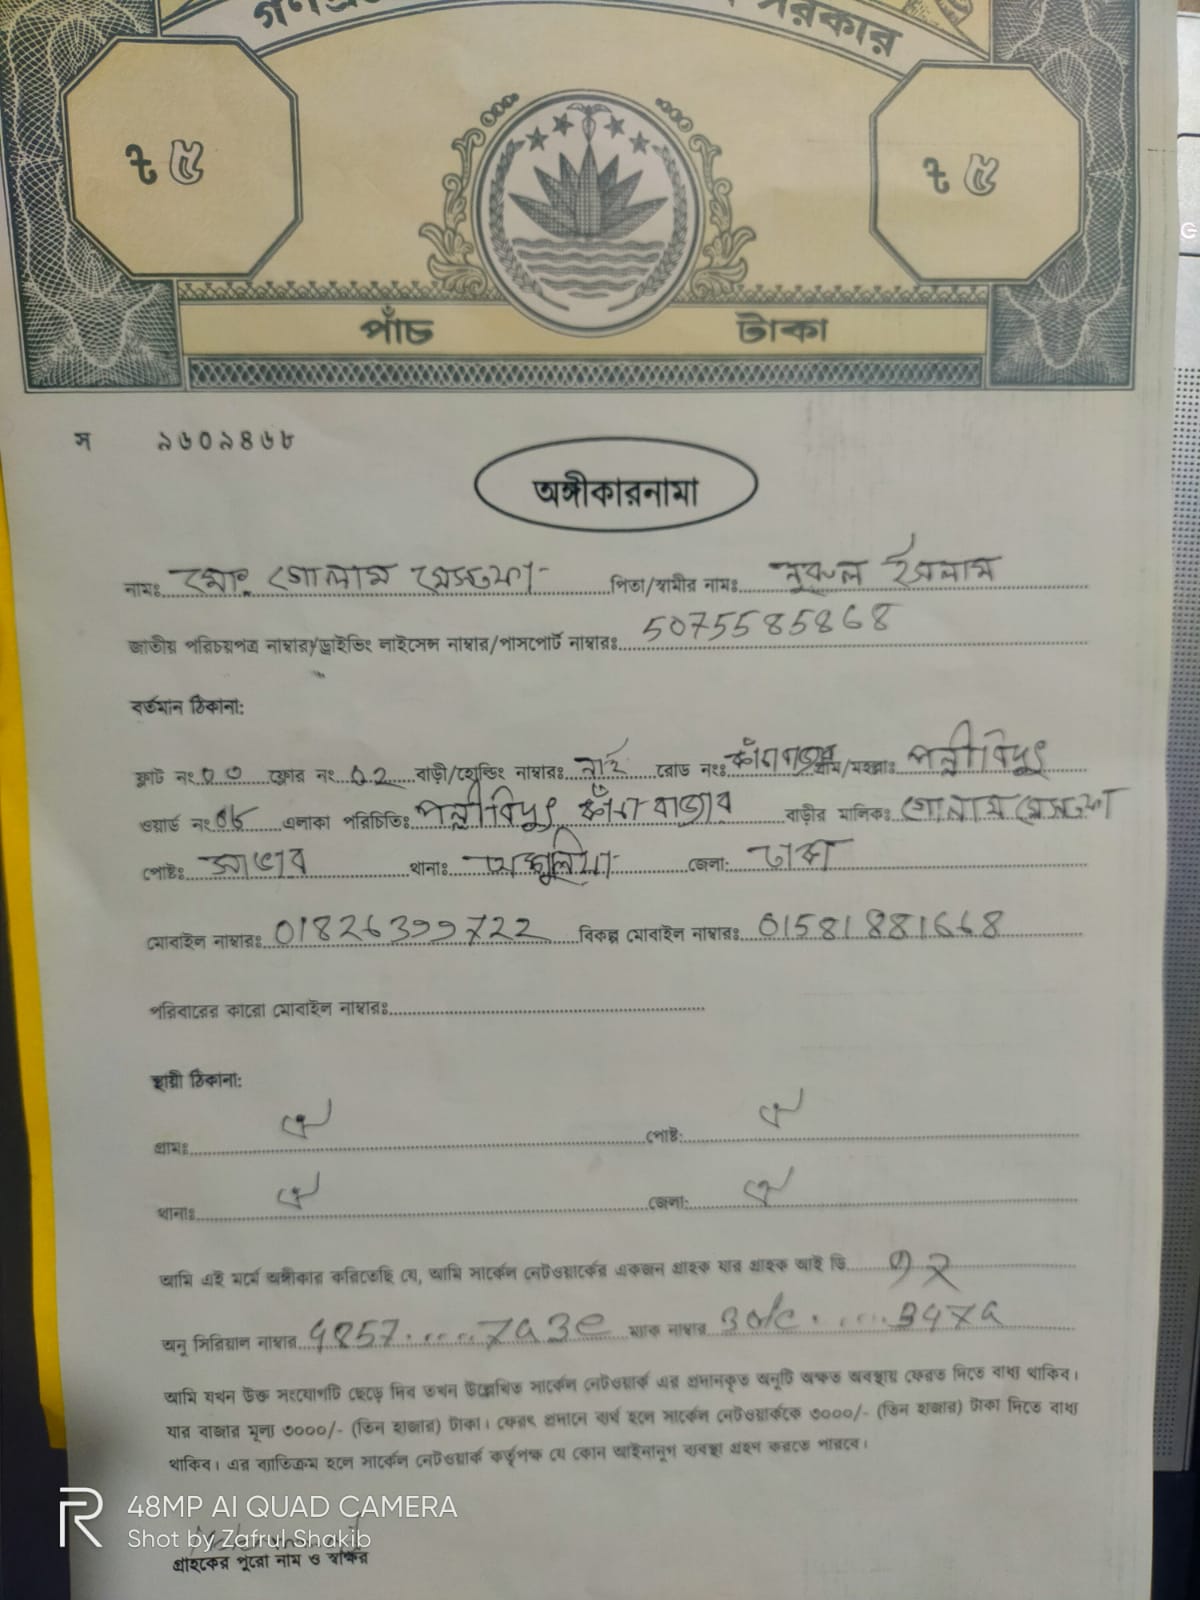 সরকার
৳ ৫ ৳ ৫
পাঁচ টাকা
স ৯৬০৯৪৬৮
অঙ্গীকারনামা
নামঃ মোঃ গোলাম মোস্তফা পিতা/স্বামীর নামঃ নুরুল ইসলাম
জাতীয় পরিচয়পত্র নাম্বার/ড্রাইভিং লাইসেন্স নাম্বার/পাসপোর্ট নাম্বারঃ 5075585868
বর্তমান ঠিকানা:
ফ্লাট নং ফ্লোর নং 02 বাড়ী/হোল্ডিং নাম্বারঃ নাই রোড নংঃ গ্রাম/মহল্লাঃ পল্লীবিদ্যুৎ
ওয়ার্ড নং এলাকা পরিচিতিঃ পল্লীবিদ্যুৎ কাঁচা বাজার বাড়ীর মালিকঃ গোলাম মোস্তফা
পোষ্টঃ সাভার থানাঃ আশুলিয়া জেলা: ঢাকা
মোবাইল নাম্বারঃ 01826399722 বিকল্প মোবাইল নাম্বারঃ 01581881668
পরিবারের কারো মোবাইল নাম্বারঃ
স্থায়ী ঠিকানা:
গ্রামঃ ঐ পোষ্ট: ঐ
থানাঃ ঐ জেলা: ঐ
আমি এই মর্মে অঙ্গীকার করিতেছি যে, আমি সার্কেল নেটওয়ার্কের একজন গ্রাহক যার গ্রাহক আই ডি
অনু সিরিয়াল নাম্বার 4857.....7a3e ম্যাক নাম্বার
আমি যখন উক্ত সংযোগটি ছেড়ে দিব তখন উল্লেখিত সার্কেল নেটওয়ার্ক এর প্রদানকৃত অনুটি অক্ষত অবস্থায় ফেরত দিতে বাধ্য থাকিব।
যার বাজার মূল্য ৩০০০/- (তিন হাজার) টাকা। ফেরৎ প্রদানে ব্যর্থ হলে সার্কেল নেটওয়ার্ককে ৩০০০/- (তিন হাজার) টাকা দিতে বাধ্য
থাকিব। এর ব্যতিক্রম হলে সার্কেল নেটওয়ার্ক কর্তৃপক্ষ যে কোন আইনানুগ ব্যবস্থা গ্রহণ করতে পারবে।
গ্রাহকের পুরো নাম ও স্বাক্ষর
R 48MP AI QUAD CAMERA
Shot by Zafrul Shakib